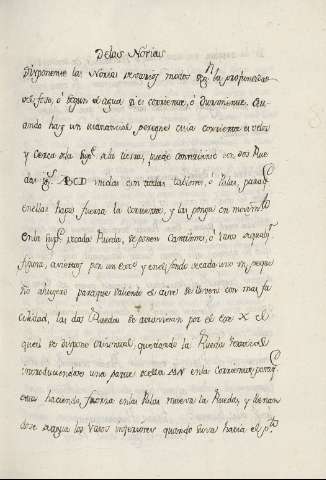 De las Norias
Disponense las Norias de varios modos segn la profundidad
del foso, ó segun el agua si es corriente, ó
ando hay un manantial, cuia corriente es veloz
y cerca de la supe de la tierra, puede construirse con dos Rue
das ABCD unidas con tablones, ó Palas, para q
en ellas haga fuerza la corriente, y las ponga en movimto
En la supe de cada Rueda, se ponen Cantaros, ó vasos de qualqa
figura, aviertos por un extro y en el fondo de cada uno un peque
ño ahugero para que saliendo el aire se llenen con mas fa
cilidad, las dos Ruedas se atraviesan por el Exe X el
qual se dispone orizontal, quedando la Rueda vertical
introduciendose una parte de ella MN en la corriente, para q
esta haciendo fuerza en las Palas mueva la Rueda, y llenan
dose de agua los vasos inferiores quando suva hacia el pto